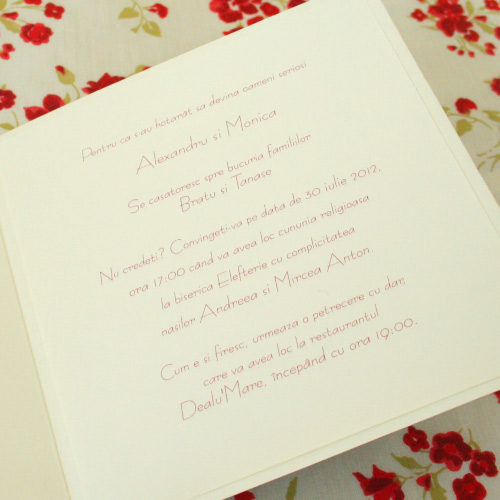 Pentru ca s-au hotarât sa devina oameni seriosi
Alexandru si Monica
Se casatoresc spre bucuria familiilor
Bratu si Tanase
Nu credeti? Convingeti-va pe data de 30 iulie 2012,
ora 17:00 când va avea loc cununia religioasa
la biserica Elefterie cu complicitatea
nasilor Andreea si Mircea Anton.
Cum e si firesc, urmeaza o petrecere cu dar,
care va avea loc la restaurantul
Dealu'Mare, începând cu ora 19:00.